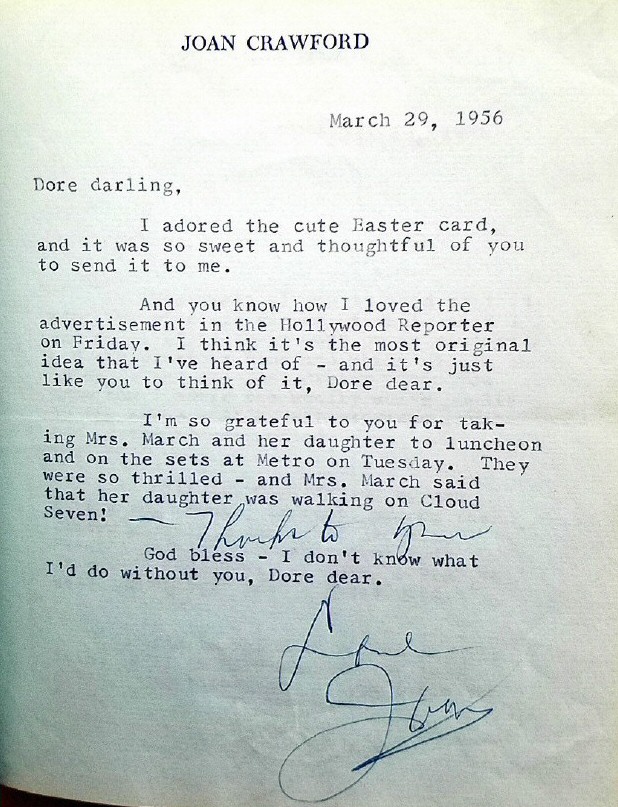 JOAN CRAWFORD
March 29, 1956
Dore darling,
I adored the cute Easter card,
and it was so sweet and thoughtful of you
to send it to me.
And you know how I loved the
advertisement in the Hollywood Reporter
on Friday. I think it's the most original
idea that I've heard of - and it's just
like you to think of it, Dore dear.
I'm so grateful to you for tak-
ing Mrs. March and her daughter to luncheon
and on the sets at Metro on Tuesday. They
were so thrilled - and Mrs. March said
that her daughter was walking on Cloud
Seven! — Thanks to you
God bless - I don't know what
I'd do without you, Dore dear.
Love
Joan